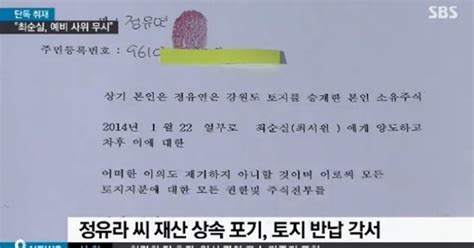 단독 취재
SBS
"최순실, 예비 사위 무시"
정유연
주민등록번호 : 961
상기 본인은 정유연은 강원도 토지를 승계한 본인 소유주식
2014년 1월 22 일부로 최순실(최서원) 에게 양도하고
차후 이에 대한
어떠한 이의도 제기하지 아니할 것이며 이로써 모든
토지지분에 대한 모든 권한및 주식전부를
정유라 씨 재산 상속 포기, 토지 반납 각서